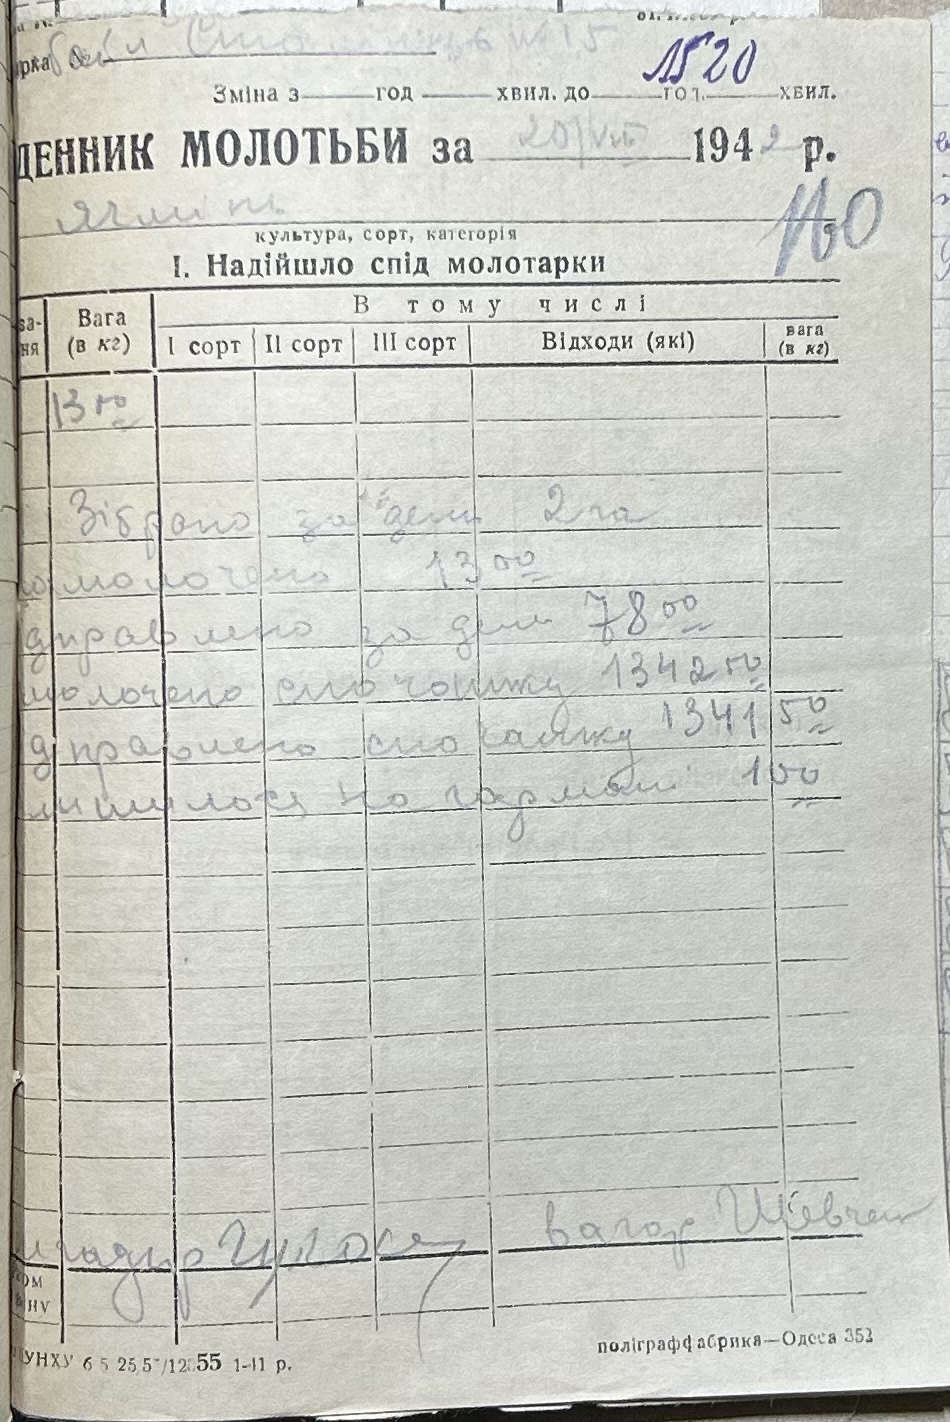 1520
Зміна з год хвил. до год. хвил.
ДЕННИК МОЛОТЬБИ за 20/VIII 1942 р.
ячмінь
160
культура, сорт, категорія
І. Надійшло спід молотарки
Вага (в кг)
В тому числі
І сорт ІІ сорт ІІІ сорт Відходи (які) вага (в кг)
13 00
Зібрано за день 2 га
молочено 13 00
дправлено за день 78 00
молочено спочатку 1342 50
дправлено спочатку 1341 50
лишилося на гармані 1 00
вагар Шевчен
УНХУ 1-ІІ р.
поліграффабрика—Одеса 352